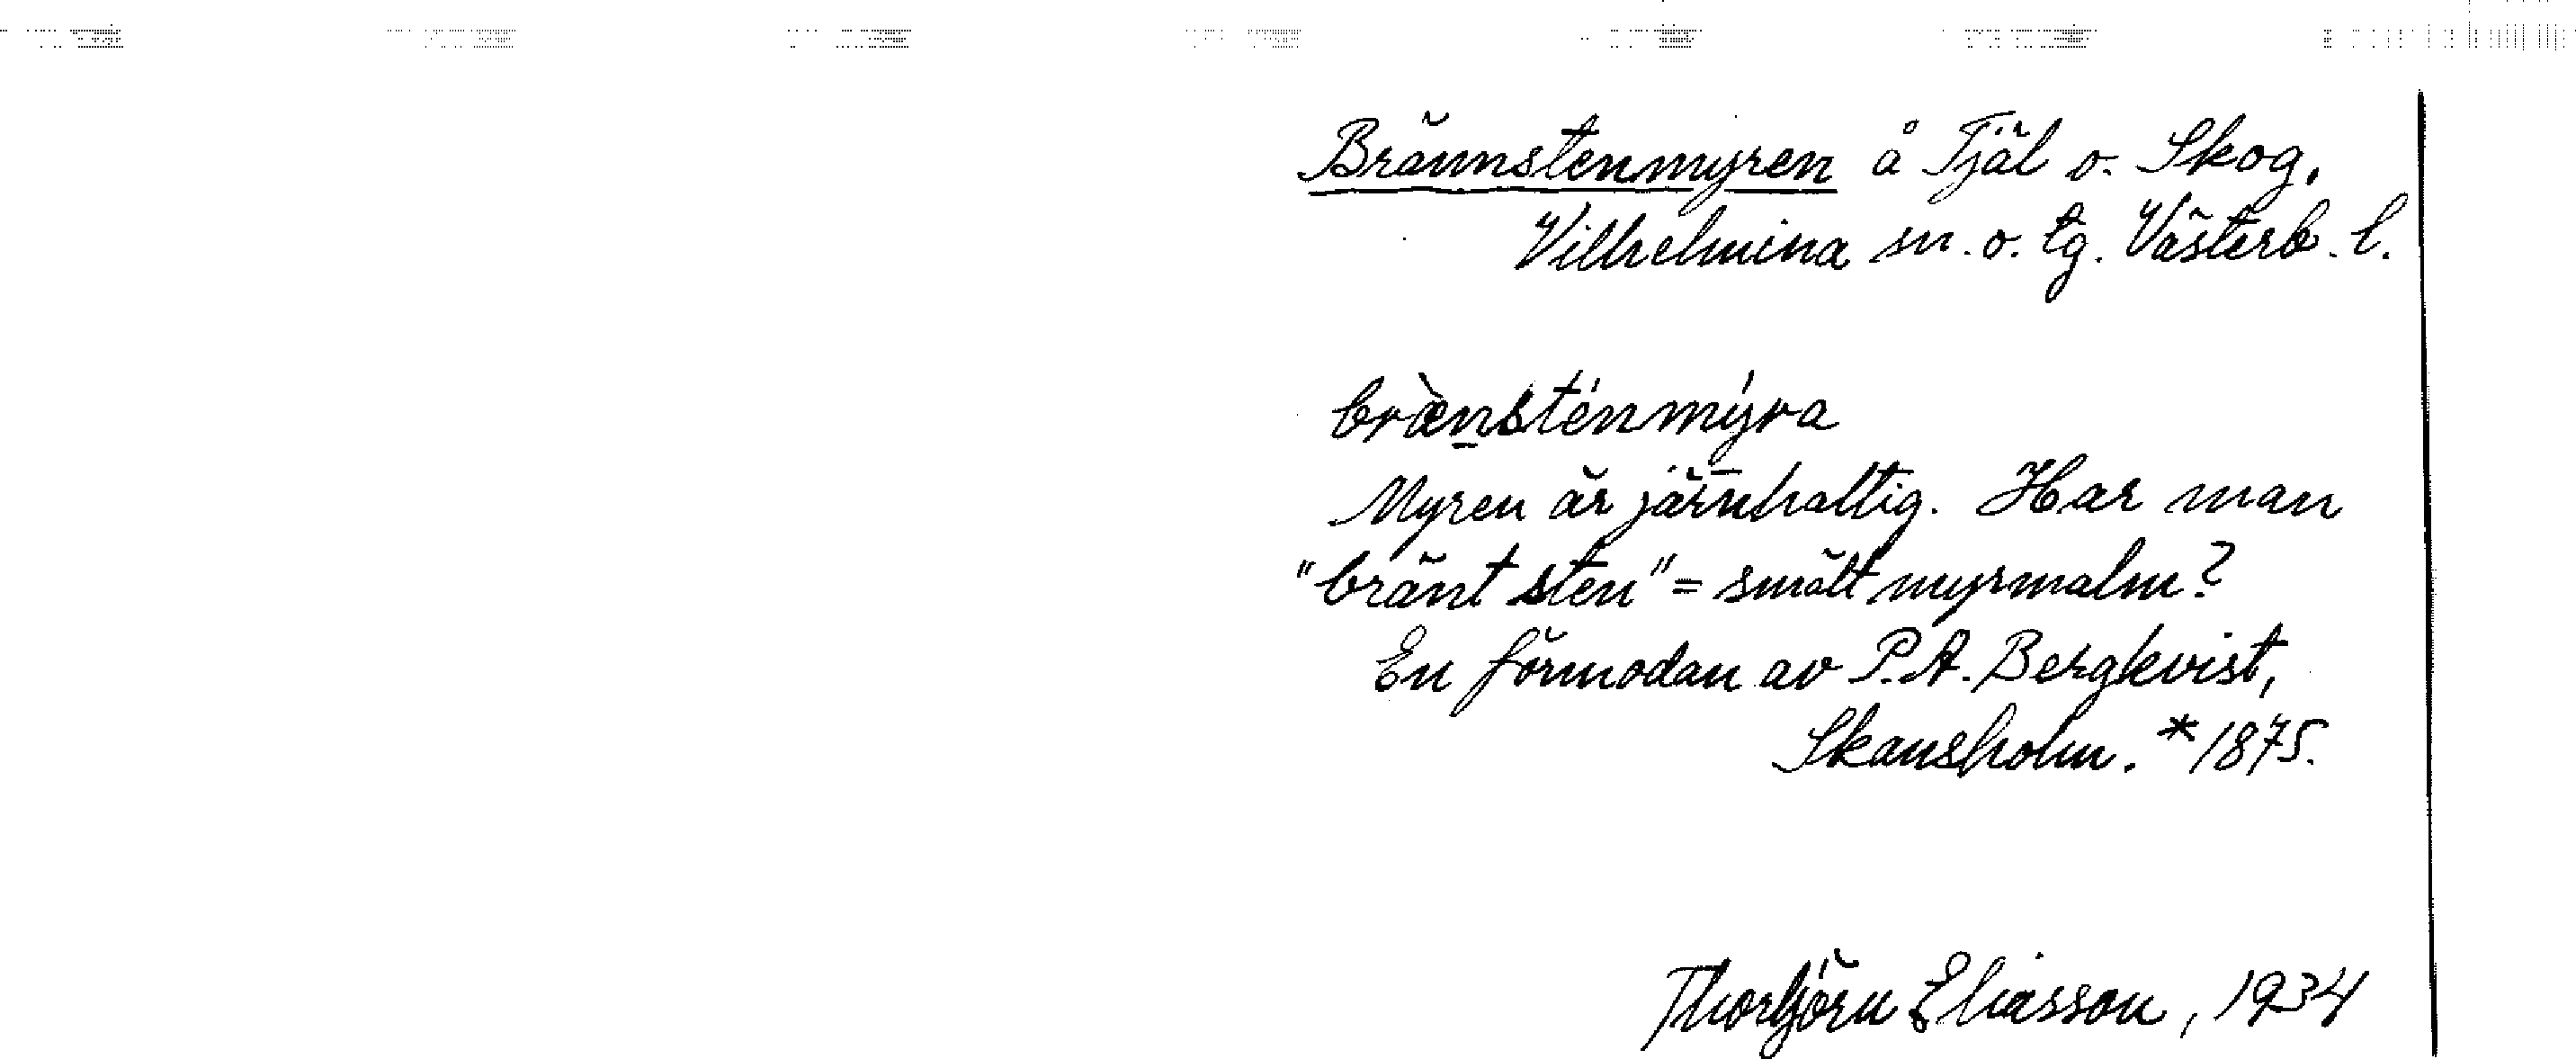 Brännstenmyren å Tjäl o. Skog,
Vilhelmina sn. o. tg. Västerb. l.
brænsténmýra
Myren är järnhaltig. Har man
"bränt sten" = smält myrmalm?
En förmodan av P.A. Bergkvist,
Skansholm. *1875.
Thorbjörn Eliasson, 1934